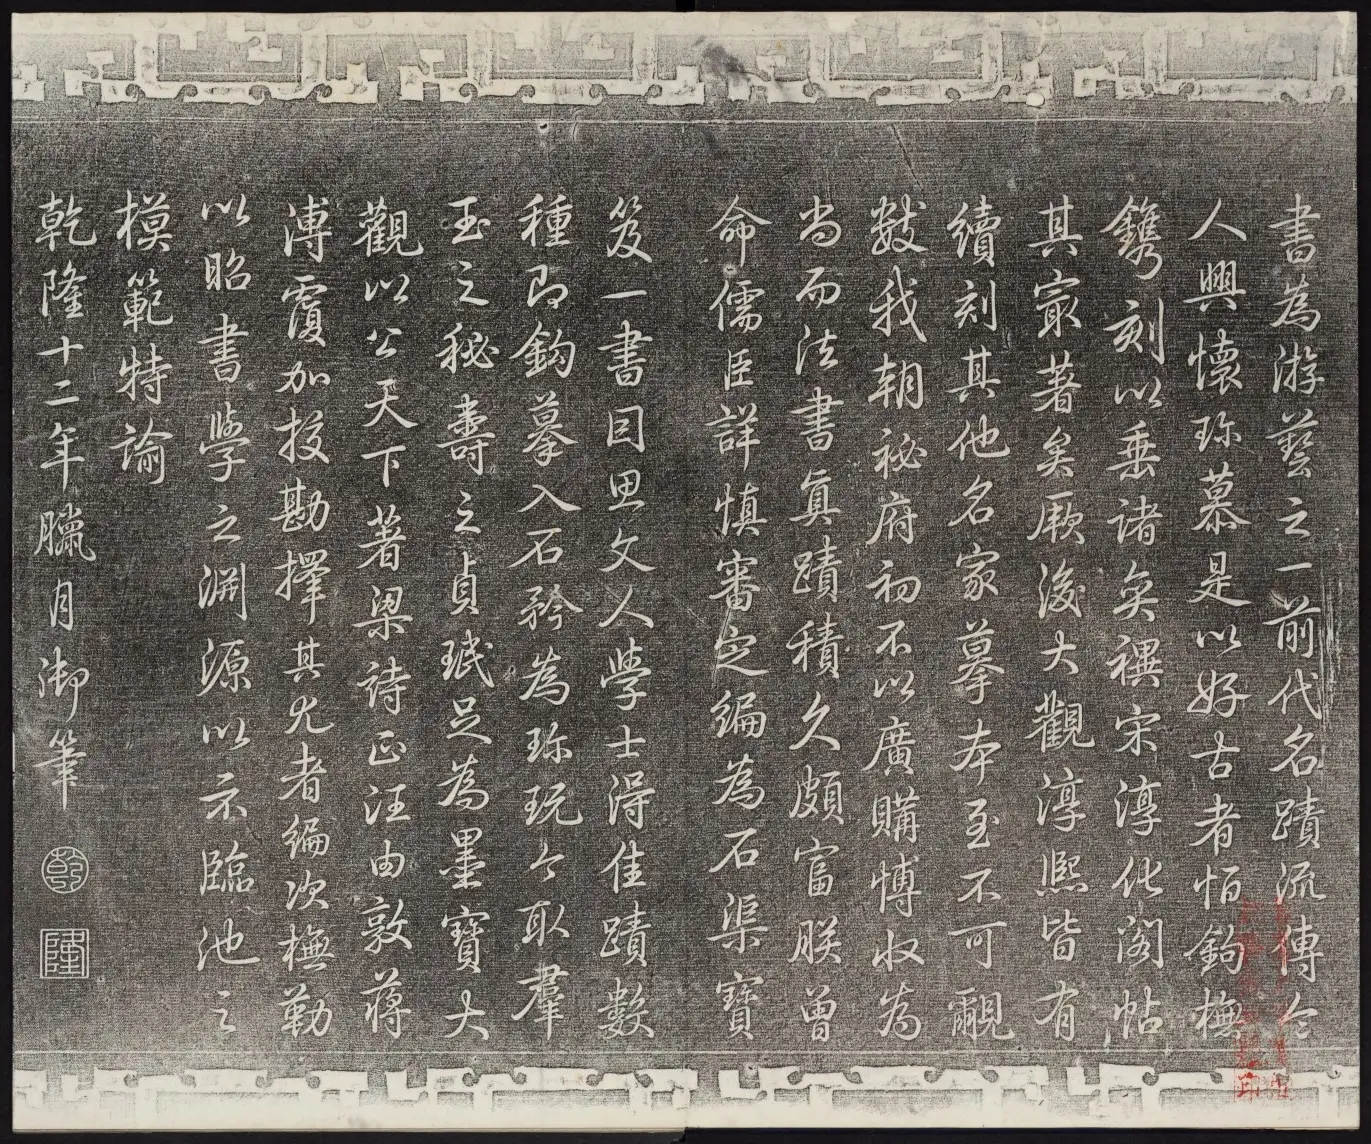 書為游藝之一前代名蹟流傳令
人興懷珎慕是以好古者恒鉤橅
鐫刻以垂諸奕禩宋淳化閣帖
其㝡著矣厥後大觀淳熙皆有
續刻其他名家摹本至不可覼
數我朝秘府初不以廣購博收為
尚而法書真蹟積久頗富朕曾
命儒臣詳慎審定編為石渠寶
笈一書因思文人學士得佳蹟數
種即鉤摹入石矜為珎玩今取羣
玉之秘壽之貞珉足為墨寶大
觀以公天下著梁詩正汪由敦蔣
溥覆加挍勘擇其尤者編次橅勒
以昭書學之淵源以示臨池之
模範特諭
乾隆十二年臘月御筆
乾
隆